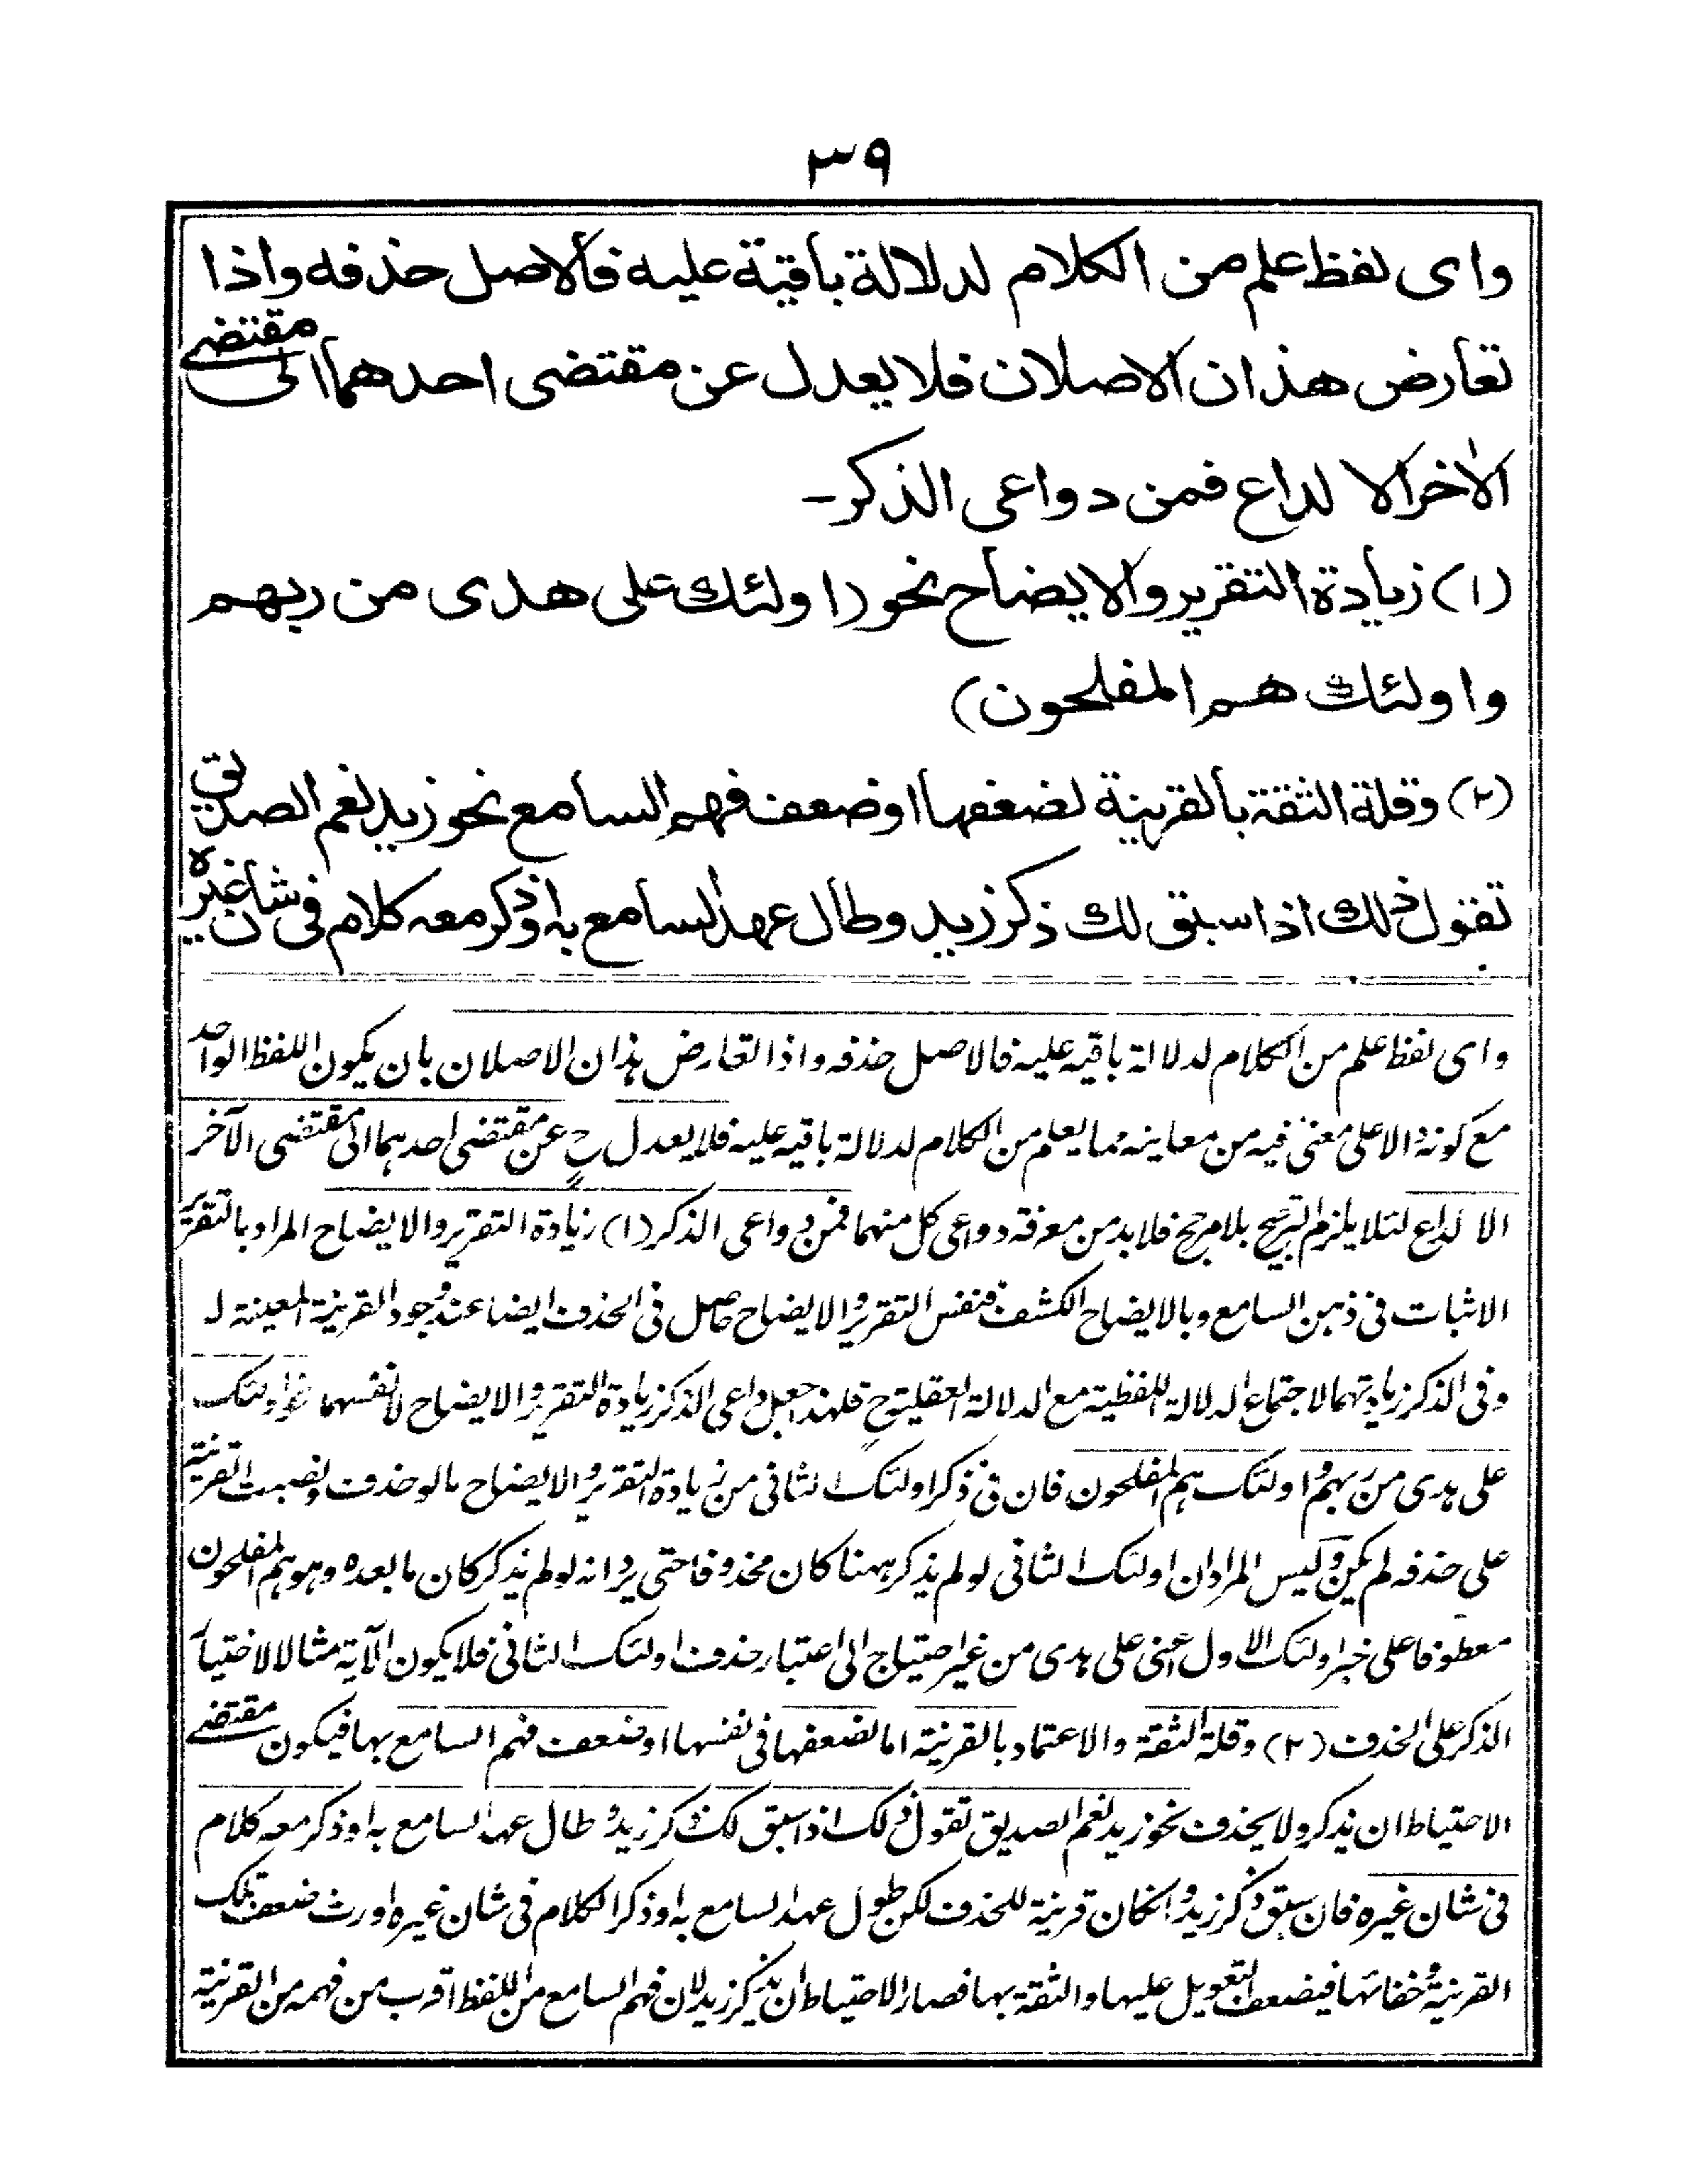 ٣٩
واى لفظ علم من الكلام لدلالة باقية عليه فالاصل حذفه واذا
تعارض هذان الاصلان فلا يعدل عن مقتضى احدهما الى مقتضى
الاخر الا لداع فمن دواعى الذكر-
(١) زيادة التقرير والايضاح نحو (اولئك على هدى من ربهم
واولئك هم المفلحون)
(٢) وقلة الثقة بالقرينة لضعفها او ضعف فهم السامع نحو زيد نعم الصديق
تقول ذلك اذا سبق لك ذكر زيد وطال عهد السامع به او ذكر معه كلام فى شان غيره
واى لفظ علم من الكلام لدلالة باقيه عليه فالاصل حذفه واذا تعارض هذان الاصلان بان يكون اللفظ الواحد
مع كونه دالا على معنى فيه من معاينه مما يعلم من الكلام لدلالة باقيه عليه فلا يعدل ح عن مقتضى احدهما الى مقتضى الآخر
الا لداع لئلا يلزم الترجيح بلا مرجح فلا بد من معرفة دواعى كل منهما فمن دواعى الذكر (١) زيادة التقرير والايضاح المراد بالتقرير
الاثبات فى ذهن السامع وبالايضاح الكشف فنفس التقرير والايضاح حاصل فى الحذف ايضا عند وجود القرينة المعينة لـ
وفى الذكر زيادتهما لاجتماع الدلالة اللفظية مع الدلالة العقلية ح فلهذا جعل داعى الذكر زيادة التقرير والايضاح لا نفسهما نحو اولئك
على هدى من ربهم واولئك هم المفلحون فان فى ذكر اولئك الثانى من زيادة التقرير والايضاح ما لو حذف ونصبت القرينة
على حذفه لم يكن وليس المراد ان اولئك الثانى لو لم يذكر ههنا كان محذوفا حتى يرد انه لو لم يذكر كان ما بعده وهو هم المفلحون
معطوفا على خبر اولئك الاول اعنى على هدى من غير احتياج الى اعتبار حذف اولئك الثانى فلا يكون الآية مثالا لاختيار
الذكر على الحذف (٢) وقلة الثقة والاعتماد بالقرينة اما لضعفها فى نفسها او ضعف فهم السامع بها فيكون مقتضى
الاحتياط ان يذكر ولا يحذف نحو زيد نعم الصديق تقول ذلك اذا سبق لك ذكر زيد وطال عهد السامع به او ذكر معه كلام
فى شان غيره فان سبق ذكر زيد وانكان قرينة للحذف لكن طول عهد السامع به او ذكر الكلام فى شان غيره اورث ضعف تلك
القرينة وخفائها فيضعف التعويل عليها والثقة بها فصار الاحتياط ان يذكر زيد لان فهم السامع من اللفظ اقرب من فهمه من القرينة